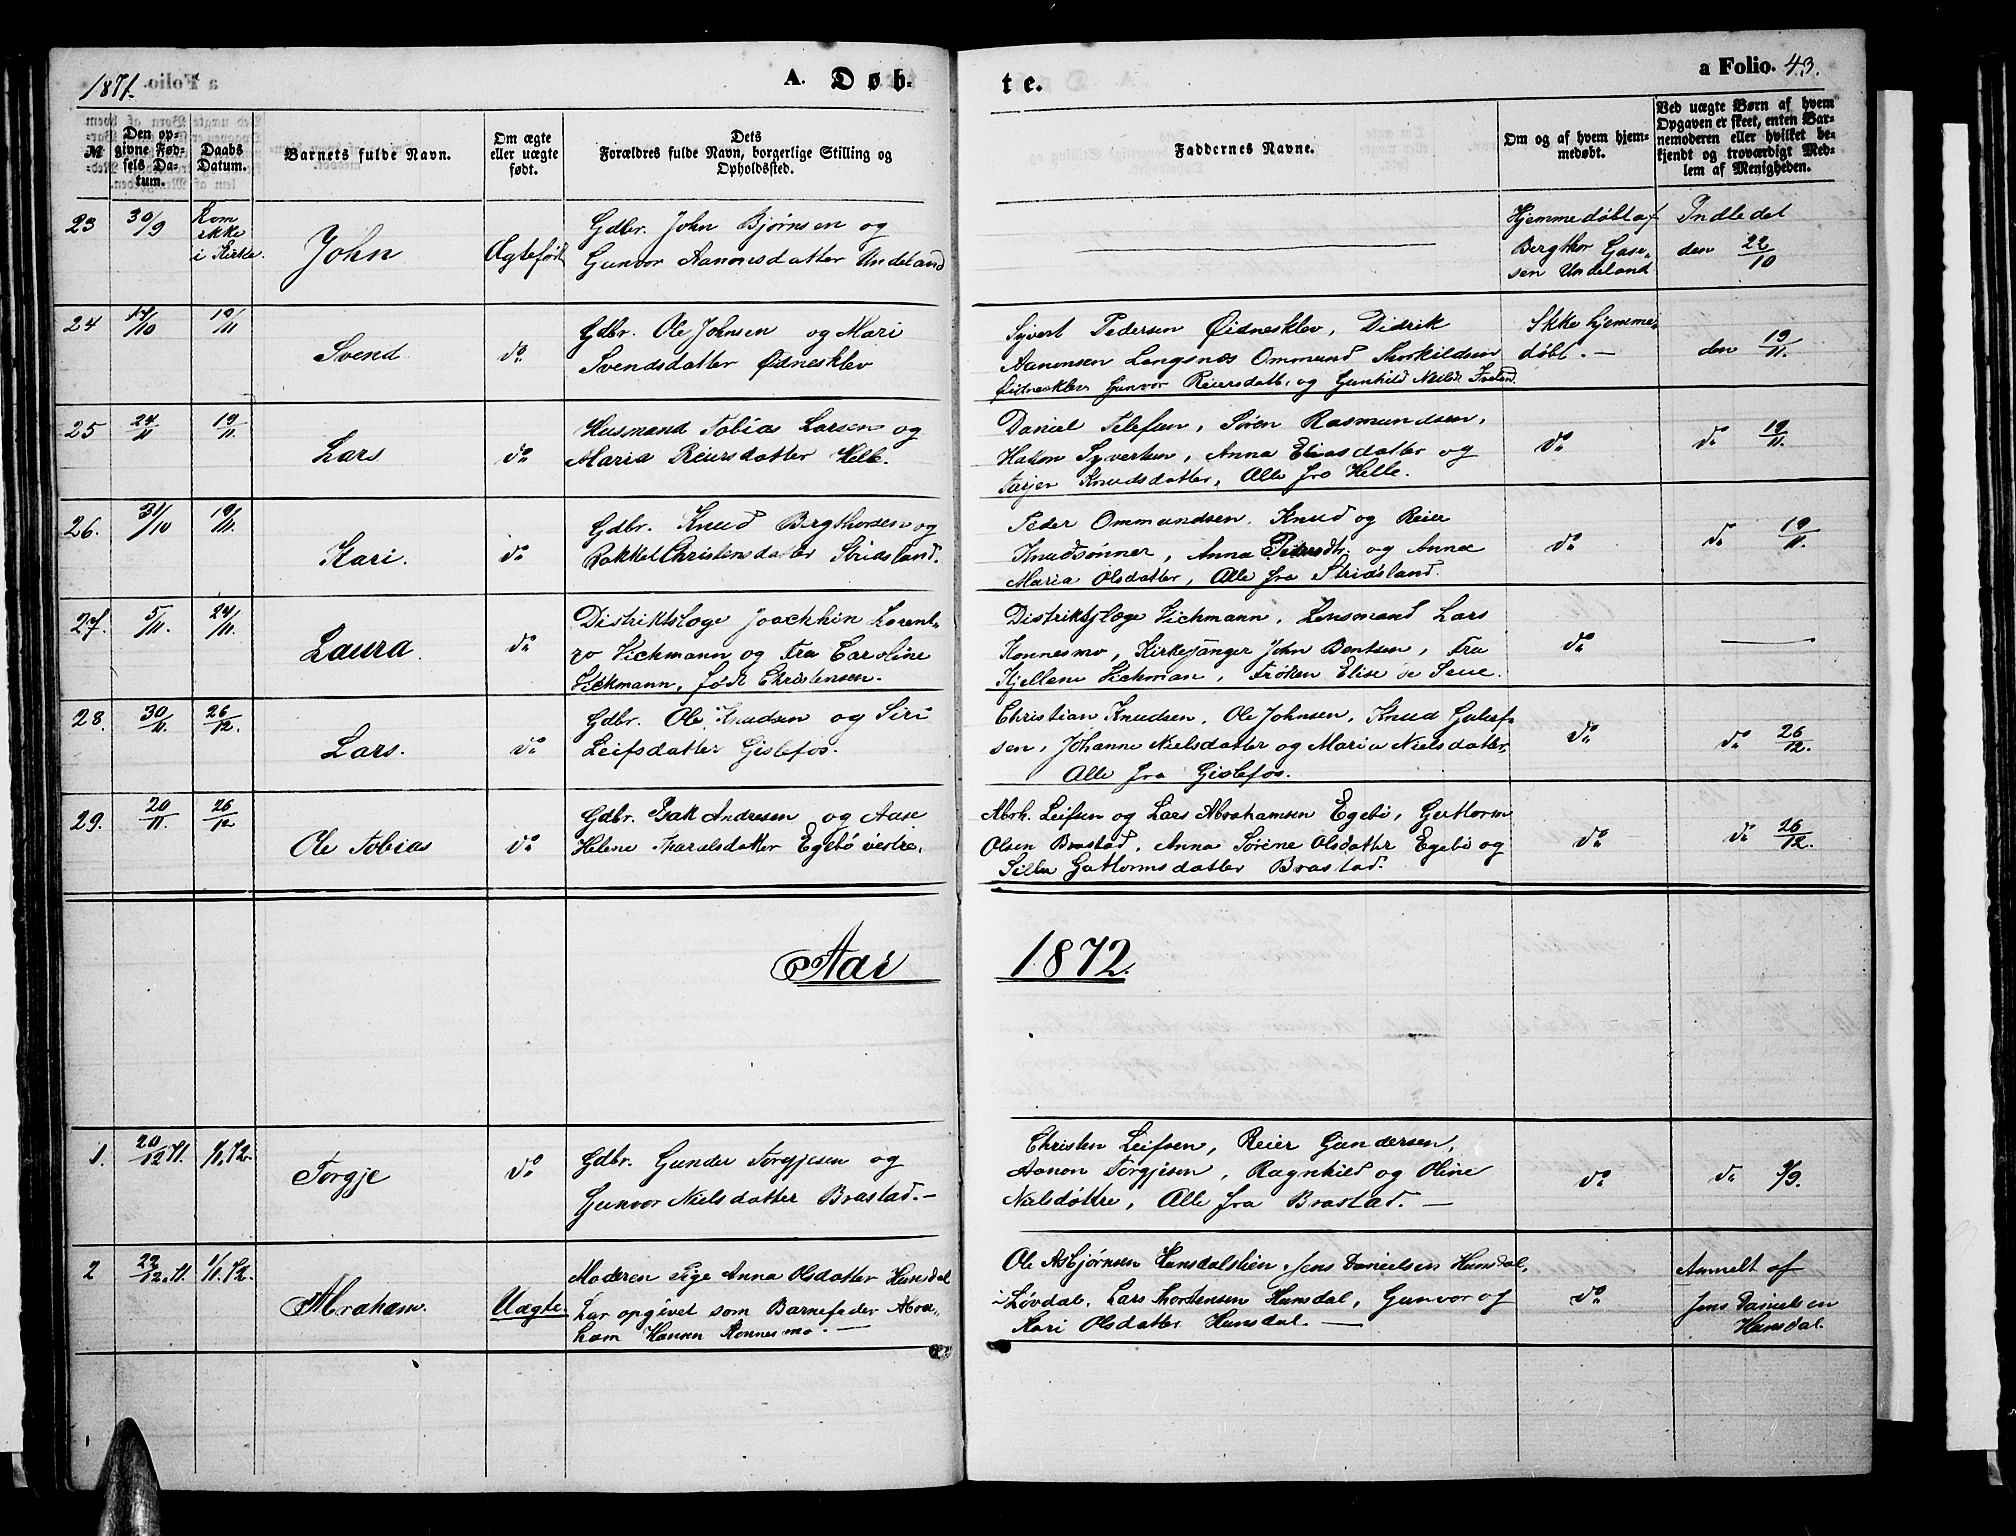 1871.
A. Døb.
te.
a Folio. 43.
№
Den opgivne Fødsels Datum.
Daabs Datum.
Barnets fulde Navn.
Om ægte eller uægte født.
Dets Forældres fulde Navn, borgerlige Stilling og Opholdssted.
Faddernes Navne.
Om og af hvem hjemmedøbt.
Ved uægte Børn af hvem Opgaven er skeet, enten Barnemoderen eller hvilket bekjendt og troværdigt Medlem af Menigheden.
23 30/9 Kom ikke i Kirke.
John
Ægtefødt
Gdbr. John Bjørnsen og
Gunvor Aanonsdatter Undeland
Hjemmedøbt af
Bergthor Gase-
sen Undeland
Indledet
den 22/10
24 14/10 19/11
Svend
do
Gdbr. Ole Johnsen og Mari
Svendsdatter Øidnesklev
Syvert Pedersen Øidnesklev, Didrik
Aanonsen Langsnæs Ommund Thorkildsen
Øidnesklev Gunvor Reiersdatt. og Gunhild
Ikke hjemme-
døbt. —
den 19/11.
25 24/11 19/11.
Lars
do
Husmand Tobias Larsen og
Maria Reiersdatter Helle.
Daniel Tellefsen, Søren Rasmundsen,
Hakon Syvertsen, Anna Eliasdatter og
Tarjer Knudsdatter, Alle fra Helle.
do
do 19/11.
26. 31/10 19/11.
Kari.
do
Gdbr. Knud Bergthorsen og
Rakkel Christensdatter Stridsland.
Peder Ommundsen, Knud og Reier
Knudsønner, Anna Pedersdtr. og Anne
Maria Olsdatter, Alle fra Stridsland.
do
do 19/11.
27. 5/11. 24/11.
Laura.
do
Distriktslæge Joachhin Lorent-
zo Vichmann og Fra Caroline
Vichmann, født Christensen.
Distriktslæge Vichmann, Lensmand Lars
Konnesmo, Kirkesanger John Bentsen, Fra
Kjellene Vichman, Frøken Elise
do
28. 30/11. 26/12.
Lars.
do
Gdbr. Ole Knudsen og Siri
Leifsdatter Gislefos.
Christian Knudsen, Ole Johnsen, Knud
sen, Johanne Nielsdatter og Maria Nielsdatter,
Alle fra Gislefos.
do
do 26/12.
29. 20/11. 26/12
Ole Tobias
do
Gdbr. Isak Andresen og Aase
Helene Tharalsdatter Egebø vestre.
Abrh. Leifsen og Lars Abrahamsen Egebø, Guttorm
Olsen Brastad, Anna Sørine Olsdatter Egebø og
Guttormsdatter Brastad.
do
do 26/12.
Aar
1872.
1. 20/12 71. 1/1.72.
Torgje
do
Gdbr. Gunder Torgjesen og
Gunvor Nielsdatter Brastad. —
Christen Leifsen, Reier Gundersen,
Aanon Torgjesen, Ragnhild og Oline
Nielsdøttre, Alle fra Brastad. —
do
do
2 22/12.71. 1/1.72.
Abraham.
Uægte.
Moderen Pige Anna Olsdatter Hunsdal
har opgivet som Barnefader Abra-
ham Hansen Konnesmo. —
Ole Asbjørnsen Hunsdalslien, Jens Danielsen Hunsdal,
Løvdal, Lars Thorstensen Hunsdal, Gunvor og
Kari Olsdatter Hunsdal. —
do
Anmelt af
Jens Danielsen
Hunsdal.